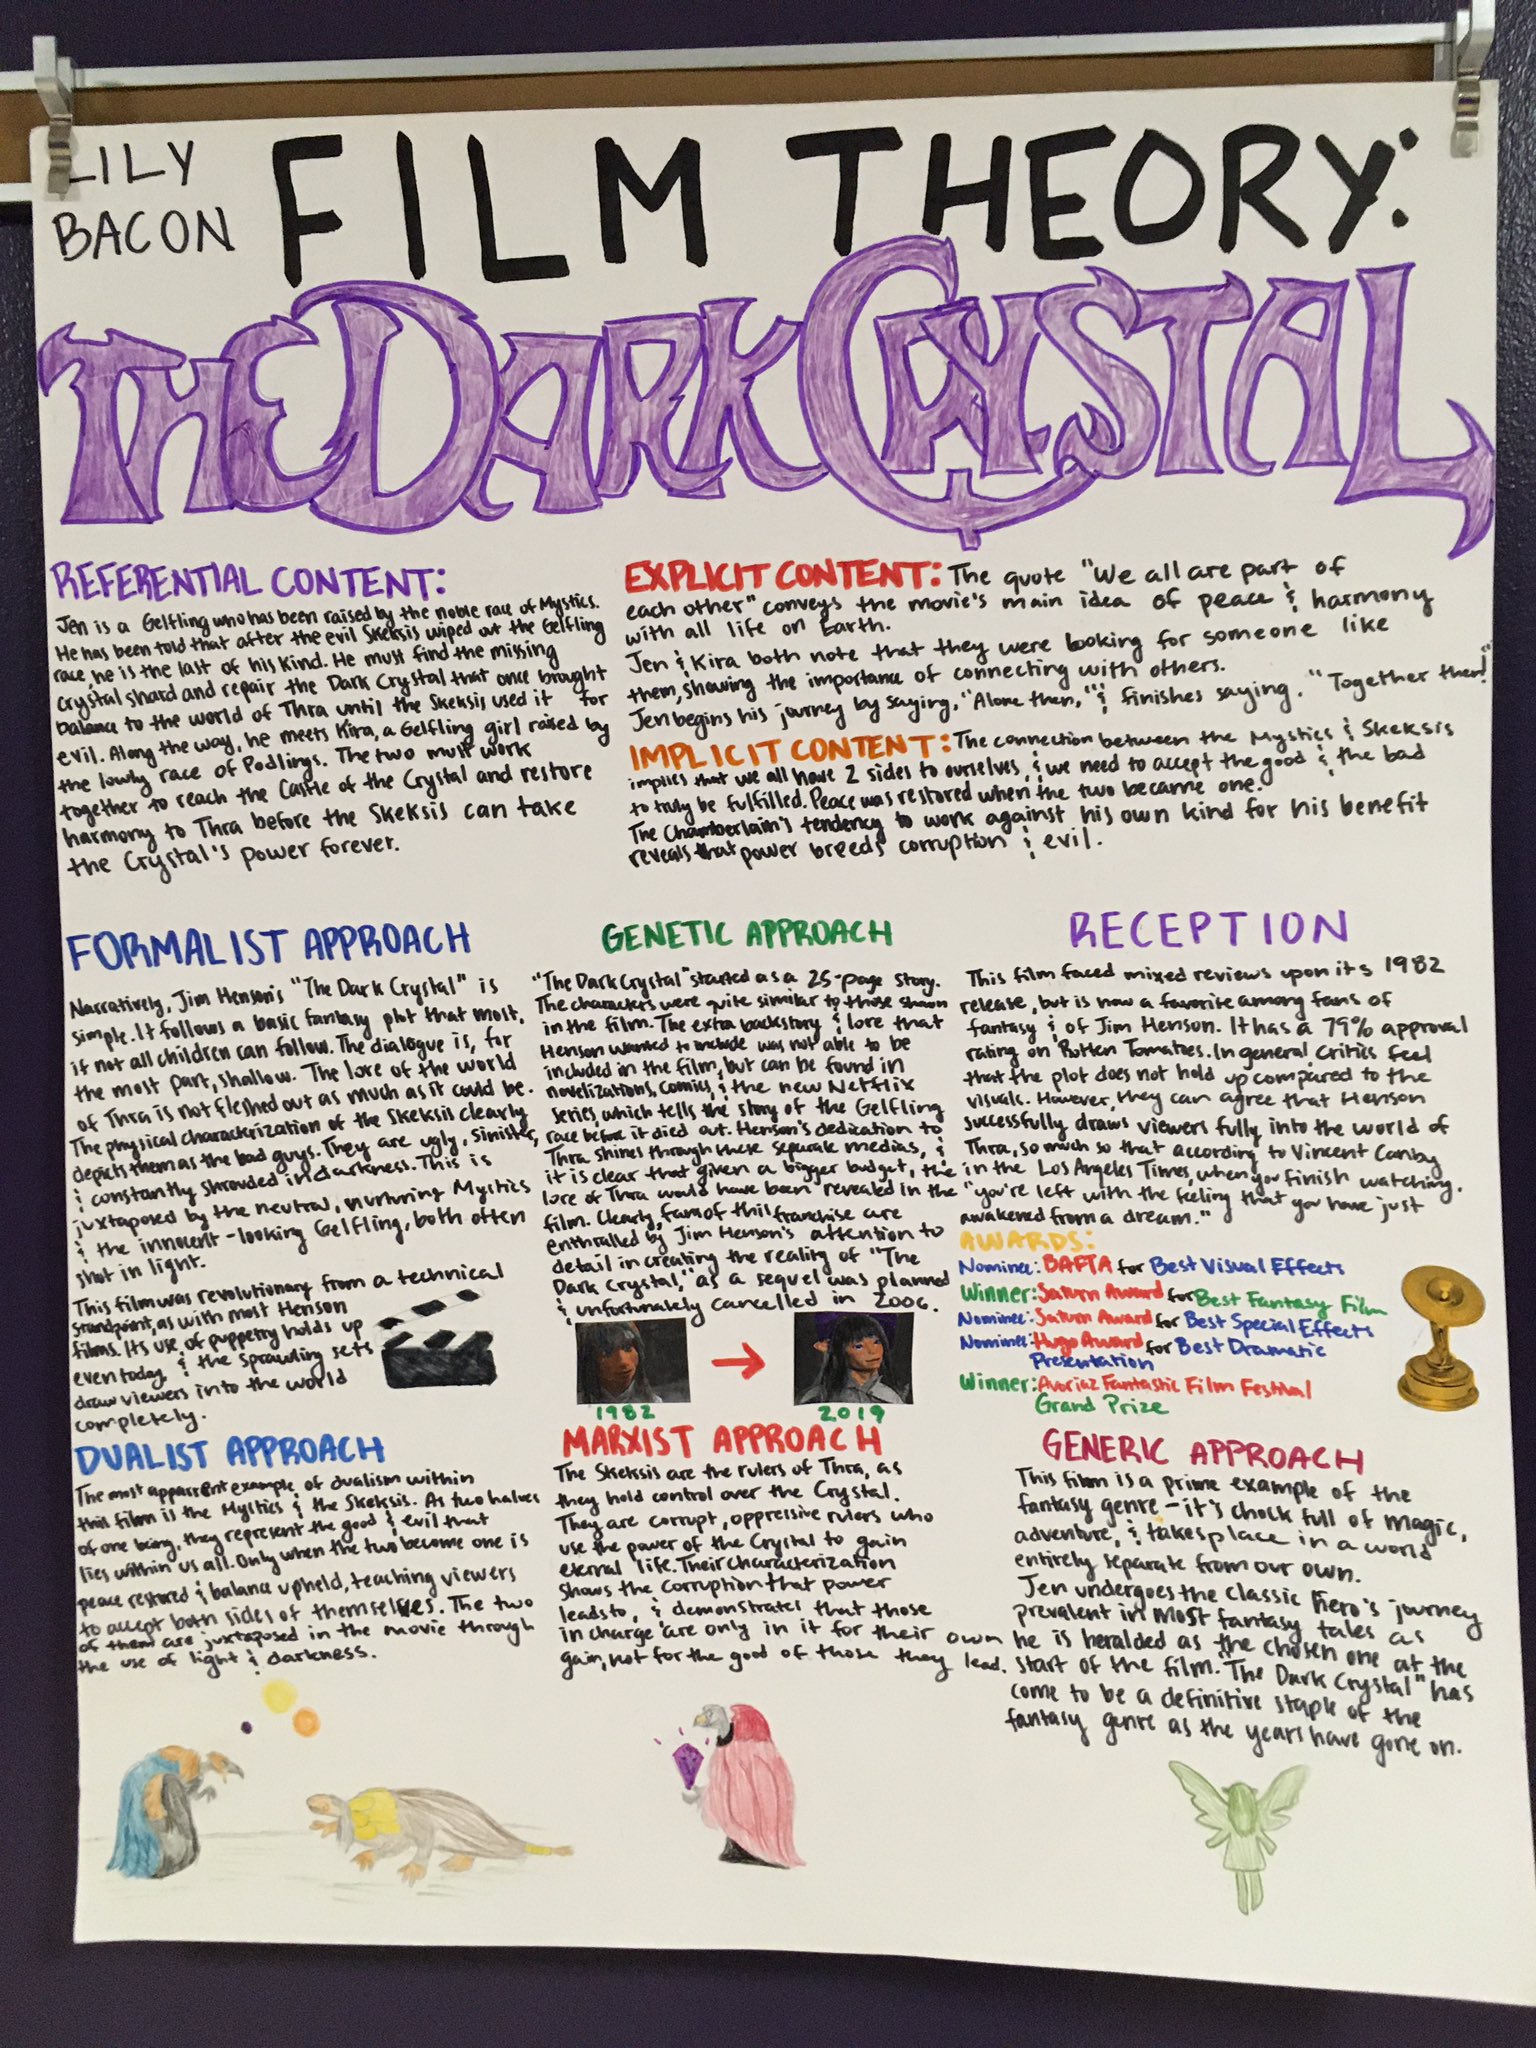 LILY
BACON
FILM THEORY:
THE DARK CRYSTAL
REFERENTIAL CONTENT:
Jen is a Gelfling who has been raised by the noble race of Mystics.
He has been told that after the evil Skeksis wiped out the Gelfling
race, he is the last of his kind. He must find the missing
crystal shard and repair the Dark Crystal that once brought
balance to the world of Thra until the Skeksis used it for
evil. Along the way, he meets Kira, a Gelfling girl raised by
the lowly race of Podlings. The two must work
together to reach the Castle of the Crystal and restore
harmony to Thra before the Skeksis can take
the Crystal's power forever.
EXPLICIT CONTENT: The quote "We all are part of
each other" conveys the movie's main idea of peace & harmony
with all life on Earth.
Jen & Kira both note that they were looking for someone like
them, showing the importance of connecting with others.
Jen begins his journey by saying, "Alone then," & finishes saying. "Together then!"
IMPLICIT CONTENT: The connection between the Mystics & Skeksis
implies that we all have 2 sides to ourselves, & we need to accept the good & the bad
to truly be fulfilled. Peace was restored when the two became one.
The Chamberlain's tendency to work against his own kind for his benefit
reveals that power breeds corruption & evil.
FORMALIST APPROACH
Narratively, Jim Henson's "The Dark Crystal" is
simple. It follows a basic fantasy plot that most,
if not all children can follow. The dialogue is, for
the most part, shallow. The lore of the world
of Thra is not fleshed out as much as it could be.
The physical characterization of the Skeksis clearly
depicts them as the bad guys. They are ugly, sinister,
& constantly shrouded in darkness. This is
juxtaposed by the neutral, nurturing Mystics
& the innocent-looking Gelfling, both often
shot in light.
This film was revolutionary from a technical
standpoint, as with most Henson
films. Its use of puppetry holds up
even today, & the sprawling sets
draw viewers into the world
completely.
GENETIC APPROACH
"The Dark Crystal" started as a 25-page story.
The characters were quite similar to those shown
in the film. The extra backstory & lore that
Henson wanted to include was not able to be
included in the film, but can be found in
novelizations, comics, & the new Netflix
series, which tells the story of the Gelfling
race before it died out. Henson's dedication to
Thra shines through these separate medias, &
it is clear that given a bigger budget, the
lore of Thra would have been revealed in the
film. Clearly, fans of this franchise are
enthralled by Jim Henson's attention to
detail in creating the reality of "The
Dark Crystal," as a sequel was planned
& unfortunately cancelled in 2006.
1982
2019
RECEPTION
This film faced mixed reviews upon its 1982
release, but is now a favorite among fans of
fantasy & of Jim Henson. It has a 79% approval
rating on Rotten Tomatoes. In general, critics feel
that the plot does not hold up compared to the
visuals. However, they can agree that Henson
successfully draws viewers fully into the world of
Thra, so much so that according to Vincent Canby
in the Los Angeles Times, when you finish watching,
"you're left with the feeling that you have just
awakened from a dream."
AWARDS:
Nominee: BAFTA for Best Visual Effects
Winner: Saturn Award for Best Fantasy Film
Nominee: Saturn Award for Best Special Effects
Nominee: Hugo Award for Best Dramatic
Presentation
Winner: Avoriaz Fantastic Film Festival
Grand Prize
DUALIST APPROACH
The most apparent example of dualism within
this film is the Mystics & the Skeksis. As two halves
of one being, they represent the good & evil that
lies within us all. Only when the two become one is
peace restored & balance upheld, teaching viewers
to accept both sides of themselves. The two
of them are juxtaposed in the movie through
the use of light & darkness.
MARXIST APPROACH
The Skeksis are the rulers of Thra, as
they hold control over the Crystal.
They are corrupt, oppressive rulers who
use the power of the Crystal to gain
eternal life. Their characterization
shows the corruption that power
leads to, & demonstrates that those
in charge are only in it for their own
gain, not for the good of those they lead.
GENERIC APPROACH
This film is a prime example of the
fantasy genre – it's chock full of magic,
adventure, & takes place in a world
entirely separate from our own.
Jen undergoes the classic hero's journey
prevalent in most fantasy tales as
he is heralded as the chosen one at the
start of the film. "The Dark Crystal" has
come to be a definitive staple of the
fantasy genre as the years have gone on.